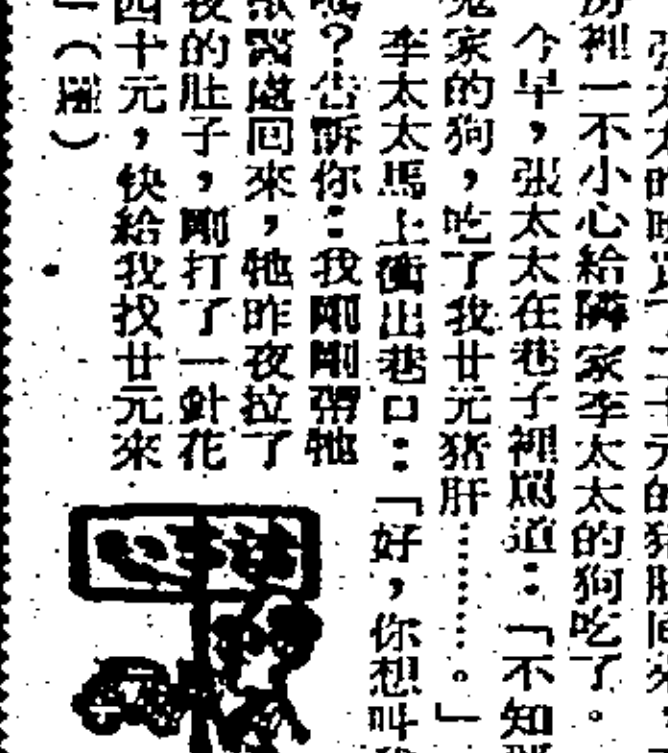 張太太昨晚買了二十元的猪肝回來，
房裡一不小心給隣家李太太的狗吃了。
今早，張太太在巷子裡駡道：「不知
鬼家的狗，吃了我廿元猪肝……。」
李太太馬上衝出巷口：「好，你想叫
嗎？告訴你：我剛剛帶牠
獸醫處回來，牠昨夜拉了
夜的肚子，剛打了一針花
四十元，快給我找廿元來
（羅）